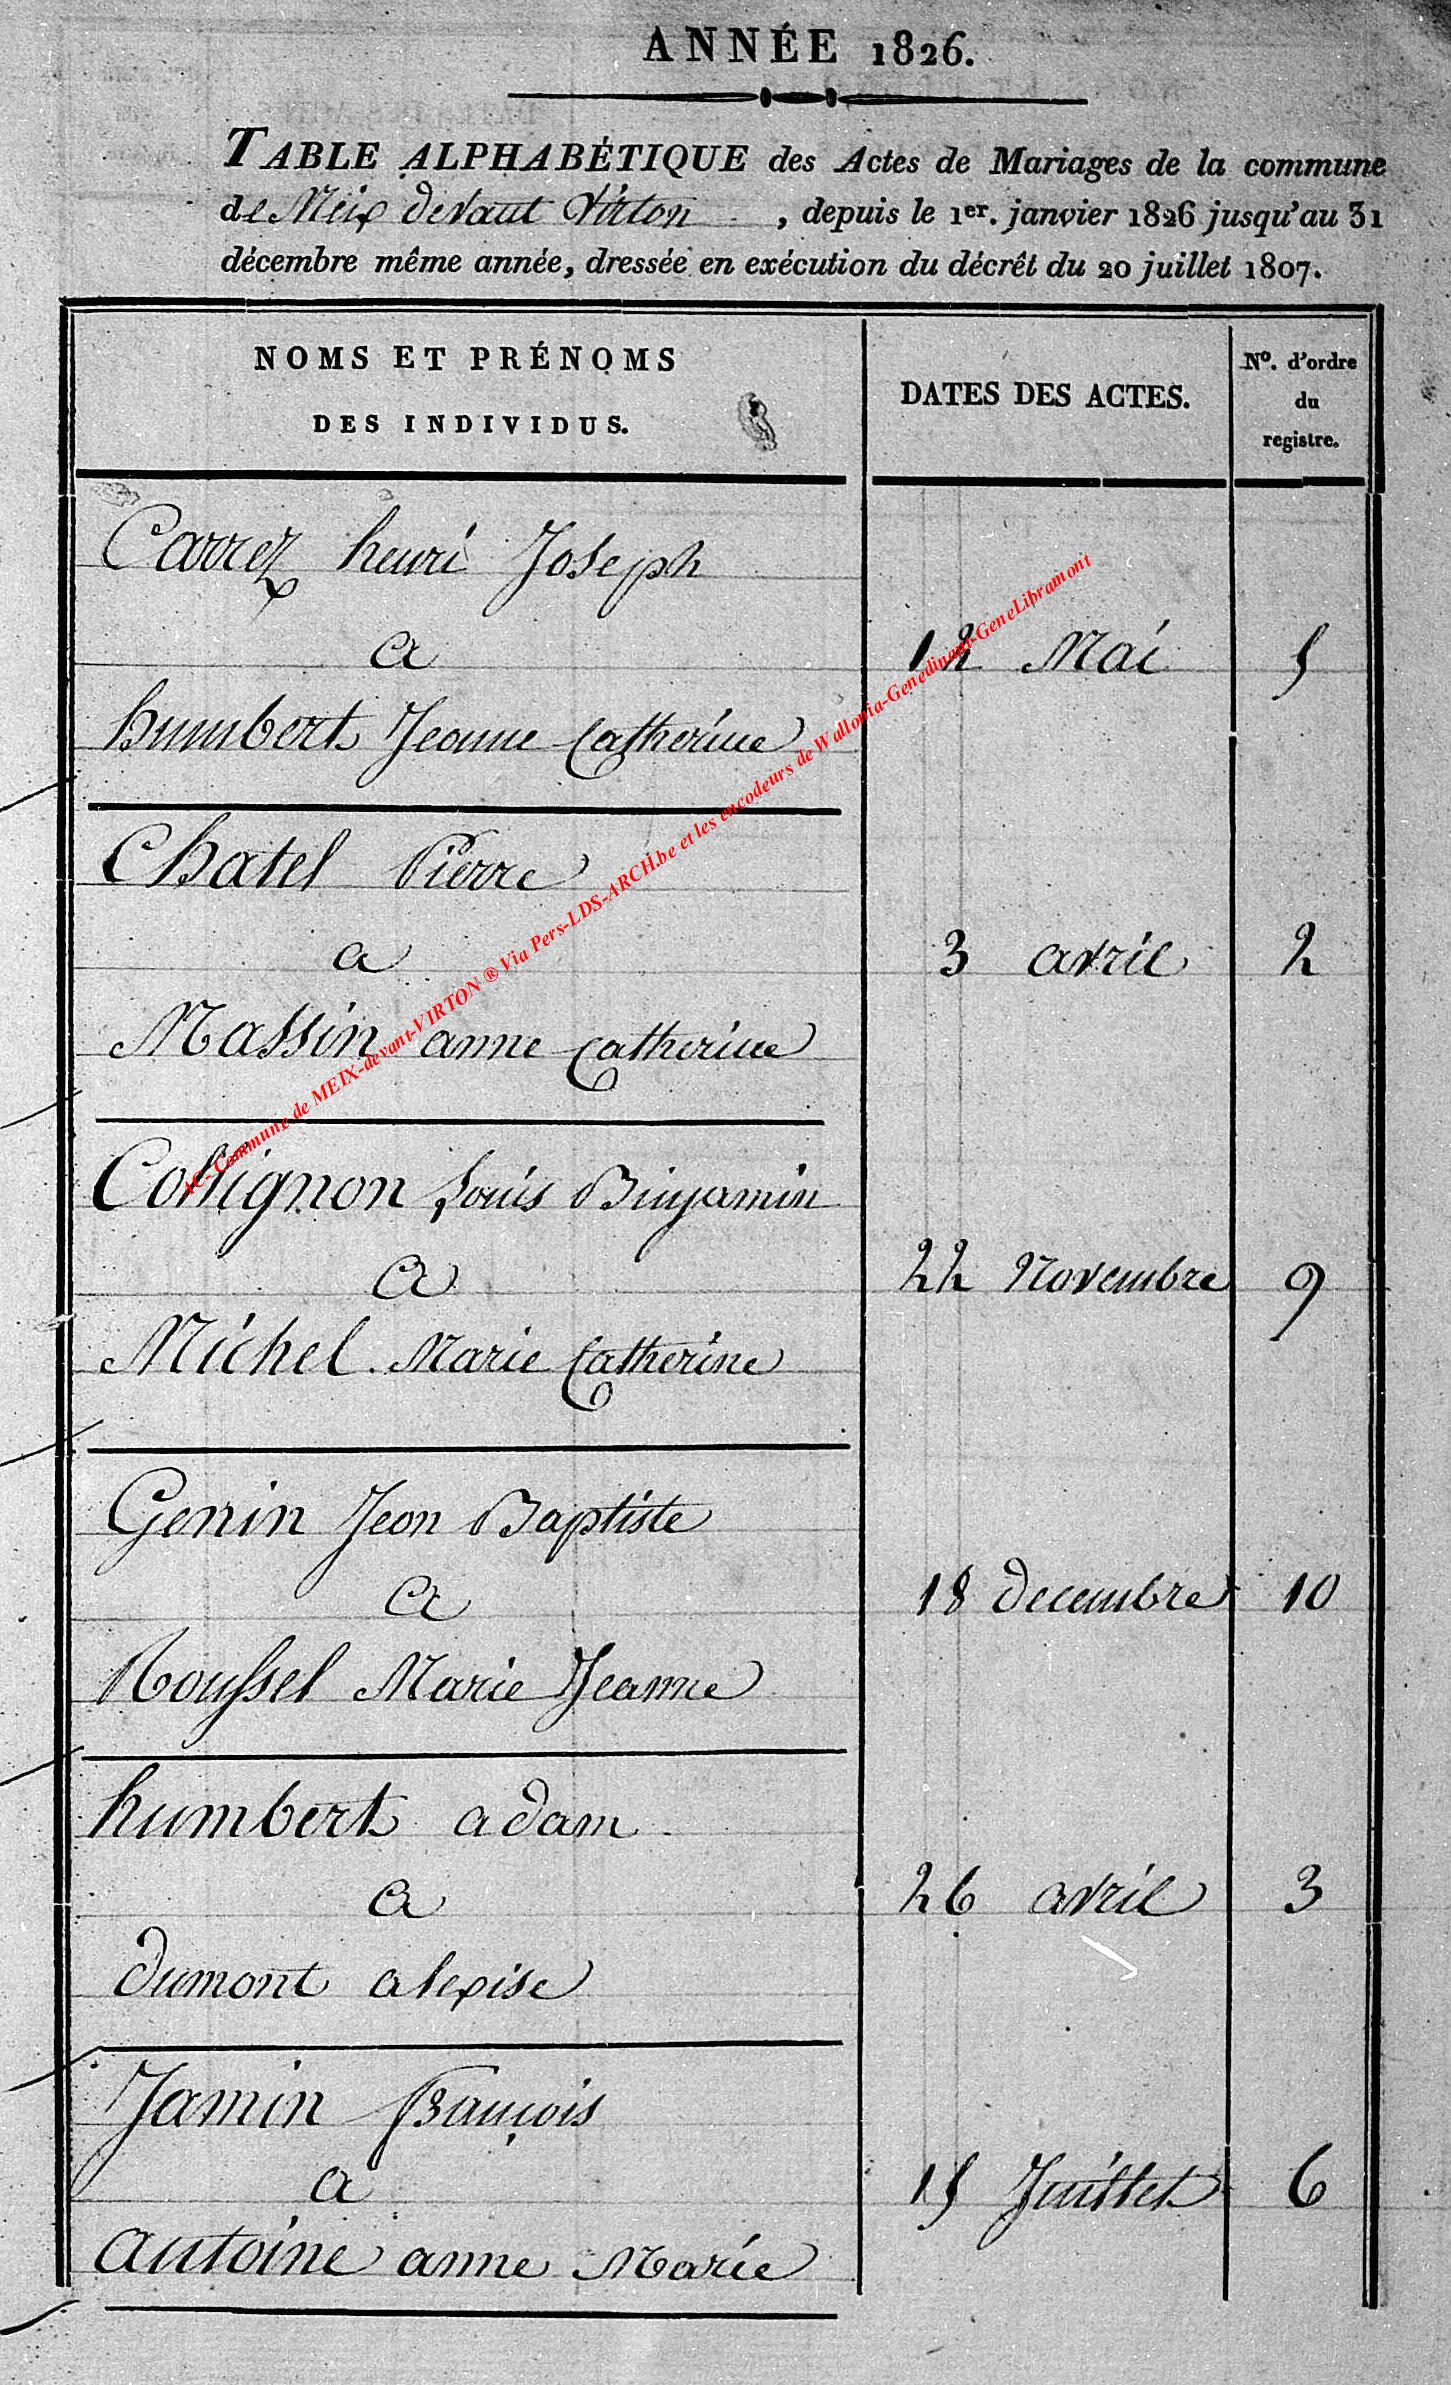 ANNÉE 1826.
TABLE ALPHABÉTIQUE des Actes de Mariages de la commune
de Meix devant Virton , depuis le 1er. janvier 1826 jusqu'au 31
décembre même année, dressée en exécution du décrêt du 20 juillet 1807.
NOMS ET PRÉNOMS
DES INDIVIDUS.
DATES DES ACTES.
N°. d'ordre
du
registre.
Carrez henri Joseph
a
12 Mai 5
humbert Jeanne Catherine
Chatel Pierre
a
3 avril 2
Massin anne Catherine
Collignon Louis Binjamin
a
22 Novembre 9
Michel Marie Catherine
Genin Jean Baptiste
a
18 decembre 10
Roussel Marie Jeanne
humbert adam
a
26 avril 3
dumont alexise
Jamin François
a
15 Juillet 6
antoine anne Marie
AC-Commune de MEIX-devant-VIRTON ® Via Pers-LDS-ARCH.be et les encodeurs de Wallonia-Genedinant-GeneLibramont